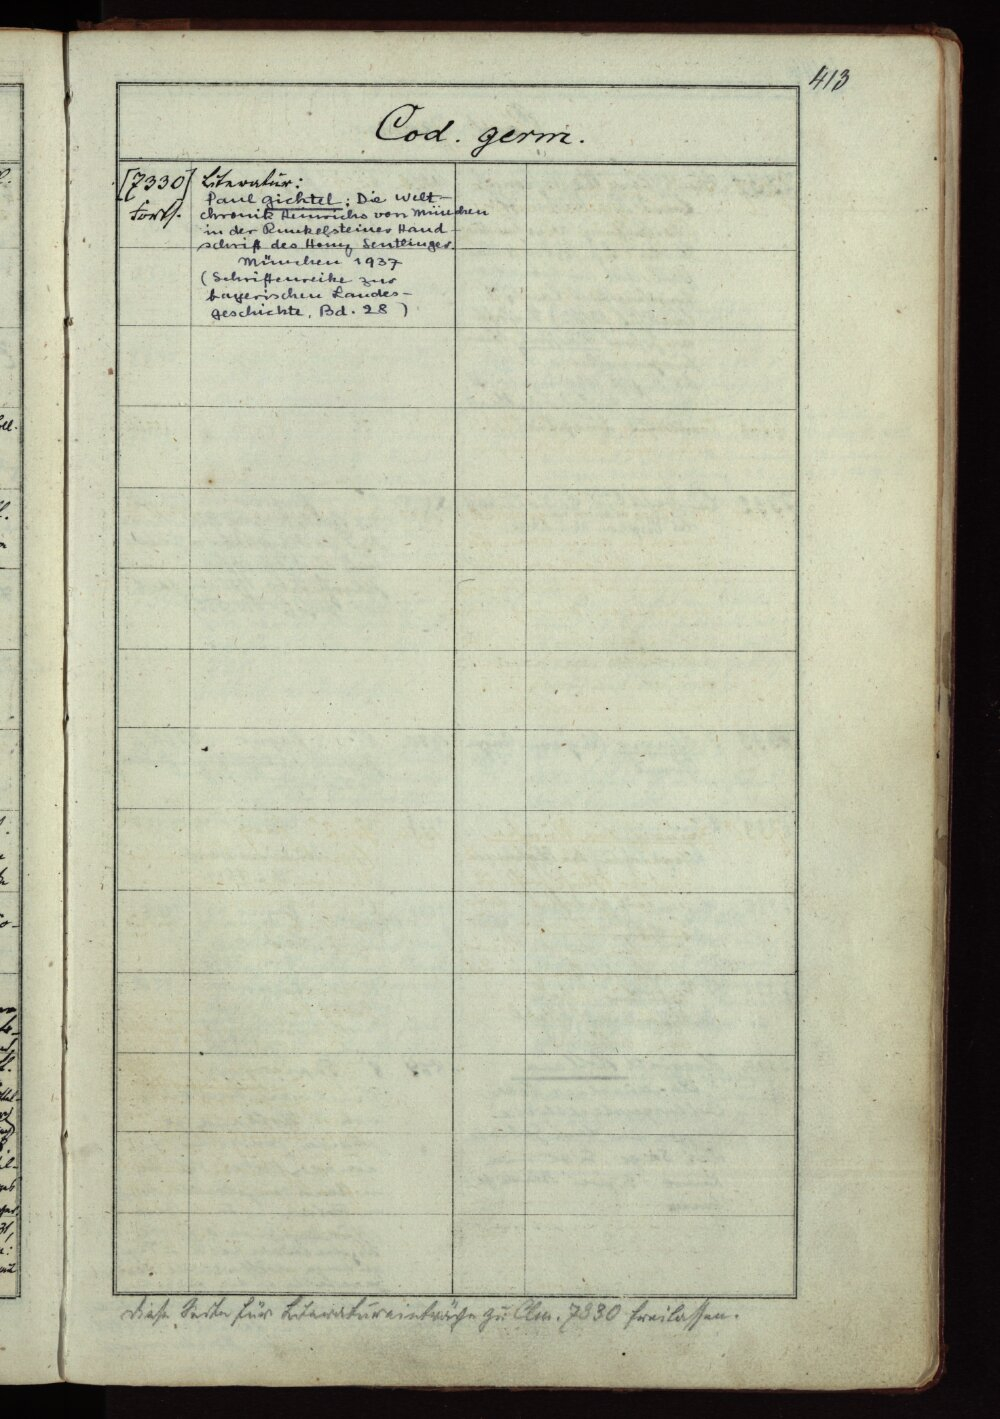 413
Cod. germ.
[7330] Literatur:
Forts. Paul Gichtel: Die Welt-
chronik Heinrichs von München
in der Runkelsteiner Hand-
schrift des Heinz Sentlinger.
München 1937
(Schriftenreihe zur
bayerischen Landes-
geschichte, Bd. 28)
Diese Seite für Literatureinträge zu Clm. 7330 freilassen.